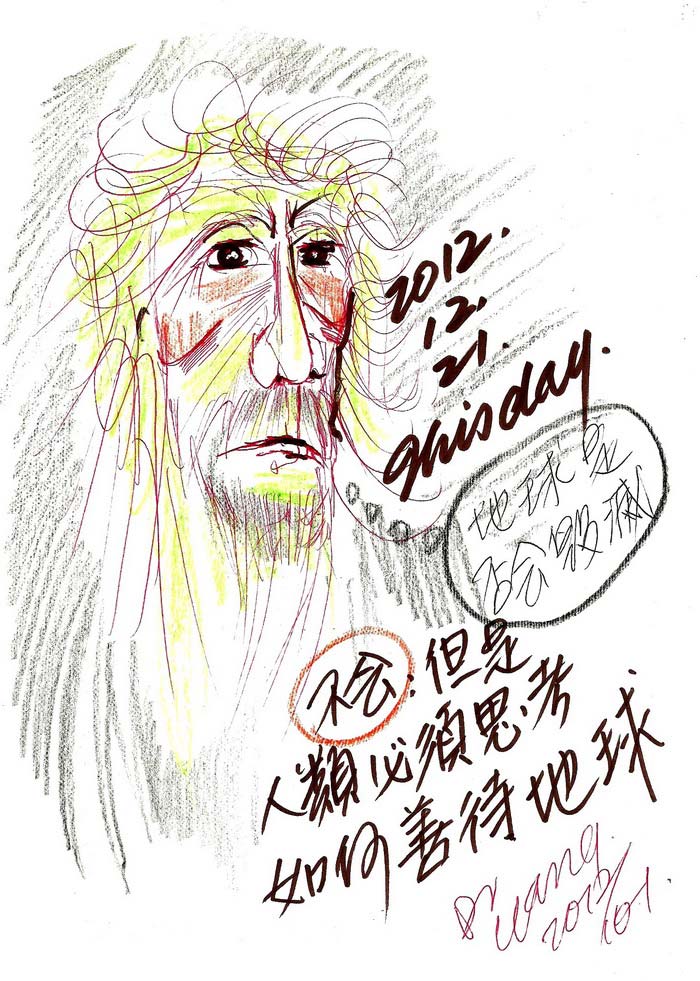 2012.
12.
21.
this day.
地球是
否会毀滅
不会.但是
人類必須思考
如何善待地球
Dr
Wang
2012/101.